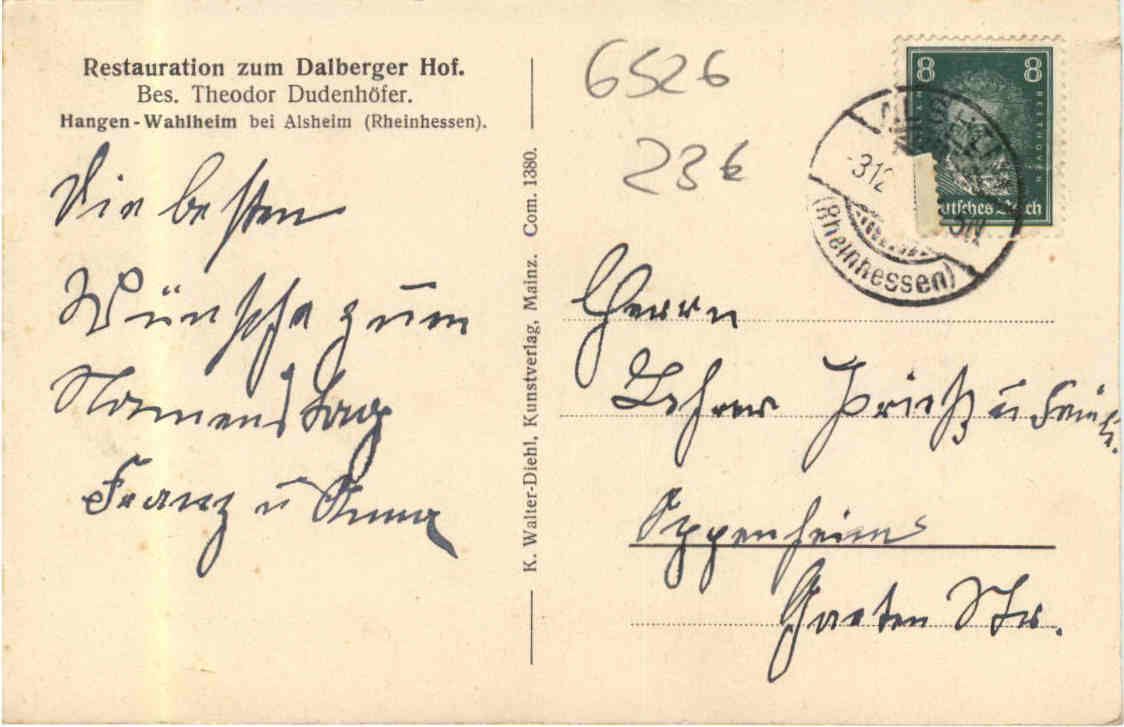 Restauration zum Dalberger Hof.
Bes. Theodor Dudenhöfer.
Hangen-Wahlheim bei Alsheim (Rheinhessen).
Die besten
Wünsche zum
Namenstag
Franz u Anna
K. Walter-Diehl, Kunstverlag, Mainz. Com. 1380.
6526
23€
8 8
BEETHOVEN
Deutsches Reich
-3.12
(Rheinhessen)
Herrn
Lehrer u Familie
Oppenheim
Garten Str.